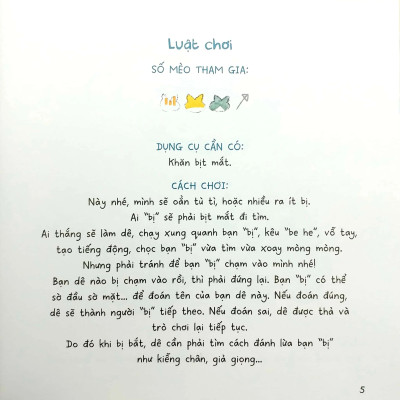 Luật chơi
SỐ MÈO THAM GIA:
DỤNG CỤ CẦN CÓ:
Khăn bịt mắt.
CÁCH CHƠI:
Này nhé, mình sẽ oẳn tù tì, hoặc nhiều ra ít bị.
Ai "bị" sẽ phải bịt mắt đi tìm.
Ai thắng sẽ làm dê, chạy xung quanh bạn "bị", kêu "be he", vỗ tay,
tạo tiếng động, chọc bạn "bị" vừa tìm vừa xoay mòng mòng.
Nhưng phải tránh để bạn "bị" chạm vào mình nhé!
Bạn dê nào bị chạm vào rồi, thì phải đứng lại. Bạn "bị" có thể
sờ đầu sờ mặt... để đoán tên của bạn dê này. Nếu đoán đúng,
dê sẽ thành người "bị" tiếp theo. Nếu đoán sai, dê được thả và
trò chơi lại tiếp tục.
Do đó khi bị bắt, dê cần phải tìm cách đánh lừa bạn "bị"
như kiễng chân, giả giọng...
5